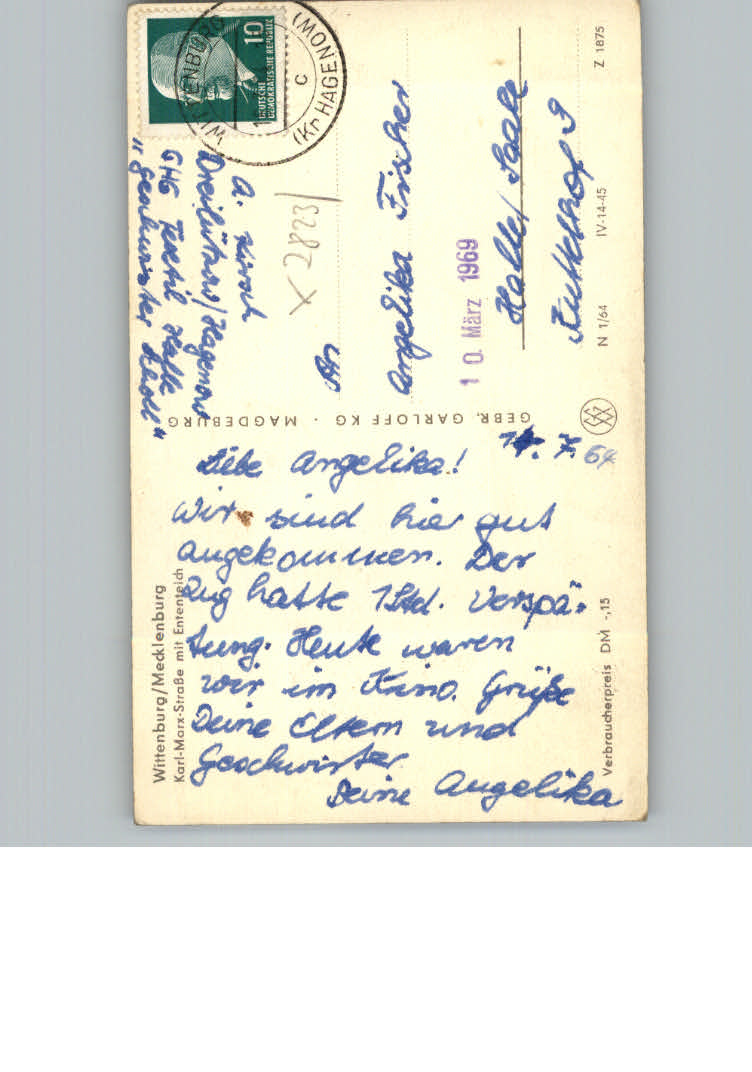 WITTENBURG
(Kr HAGENOW)
C
10
DEUTSCHE
DEMOKRATISCHE REPUBLIK
A.
Dreilützow/Hagenow
GHG Textil Halle
"Geschwister Scholl"
x 2823/
An
Angelika Fischer
10. März 1969
Halle/Saale
N 1/64 IV-14-45 Z 1875
GEBR. GARLOFF KG · MAGDEBURG
14. 7. 64
Liebe Angelika!
Wir sind hier gut
angekommen. Der
Zug hatte 1 Std. Verspä-
tung. Heute waren
wir im Kino. Grüße
Deine Eltern und
Geschwister
Deine Angelika
Wittenburg/Mecklenburg
Karl-Marx-Straße mit Ententeich
Verbraucherpreis DM -,15